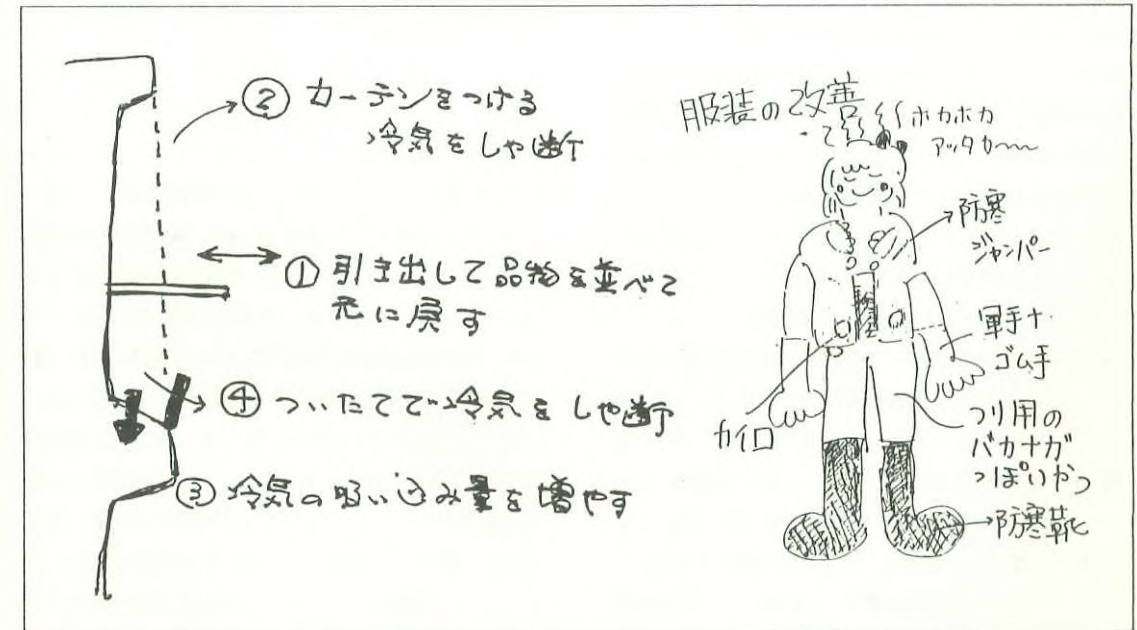 ② カーテンをつける
冷気をしゃ断
① 引き出して品物を並べて
元に戻す
④ ついたてで冷気をしゃ断
③ 冷気の吸い込み量を増やす
服装の改善
ホカホカ
アッタカ〜〜
防寒
ジャンパー
軍手+
ゴム手
カイロ
つり用の
バカナガ
っぽいやつ
防寒靴